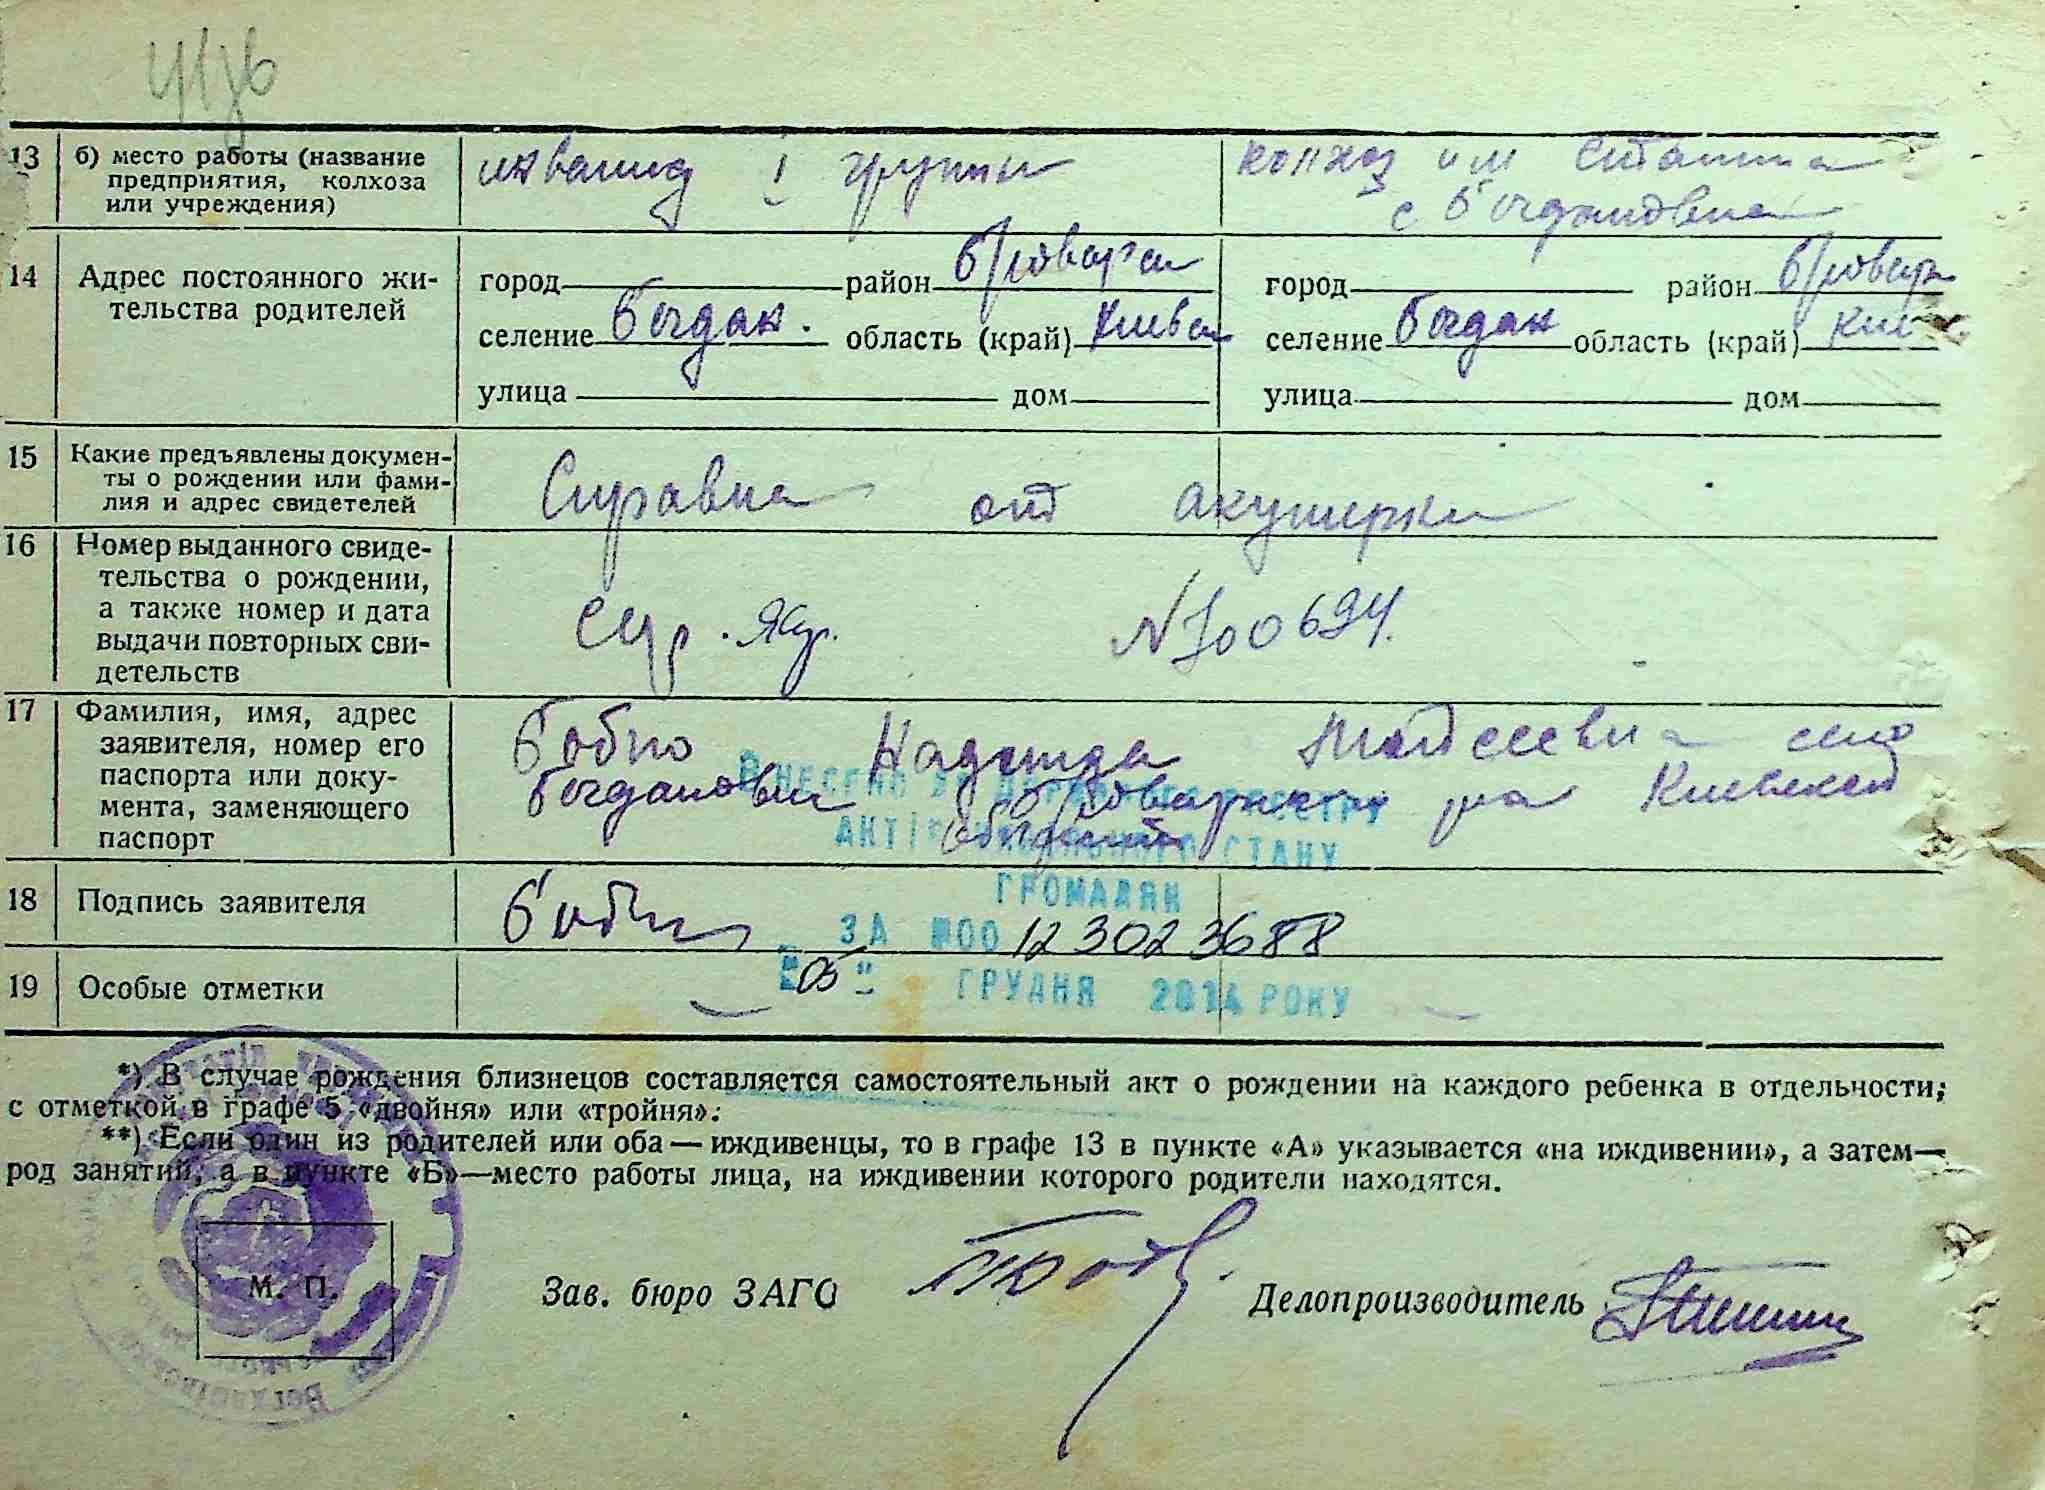 13 б) место работы (название предприятия, колхоза или учреждения) инвалид I группы колхоз им Сталина
с Богдановка
14 Адрес постоянного жительства родителей
город район Бровары город район Бровар
селение Богдан. область (край) Киевск селение Богдан область (край) Кие
улица дом улица дом
15 Какие предъявлены докумен-
ты о рождении или фами-
лия и адрес свидетелей
Справка от акушерки
16 Номер выданного свиде-
тельства о рождении,
а также номер и дата
выдачи повторных сви-
детельств
N 300694.
17 Фамилия, имя, адрес
заявителя, номер его
паспорта или доку-
мента, заменяющего
паспорт
Бобко Надежда село
Богдановка Броварского р-на Киевской
области
ВНЕСЕНО ДО ДЕРЖАВНОГО РЕЄСТРУ
АКТІВ ЦИВІЛЬНОГО СТАНУ
ГРОМАДЯН
ЗА №00 123023688
"05" ГРУДНЯ 2014 РОКУ
18 Подпись заявителя Бобко
19 Особые отметки
*) В случае рождения близнецов составляется самостоятельный акт о рождении на каждого ребенка в отдельности,
с отметкой в графе 5 «двойня» или «тройня».
**) Если один из родителей или оба — иждивенцы, то в графе 13 в пункте «А» указывается «на иждивении», а затем—
род занятий, а в пункте «Б»—место работы лица, на иждивении которого родители находятся.
М. П. Зав. бюро ЗАГС Делопроизводитель